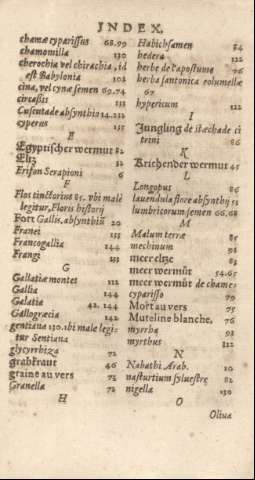 INDEX.
chamæ cyparissus 68.99
chamomilla 130
cherochia vel chirachia, id
est Babylonia 102
cina, vel cyna semen 69.74
circæus 153
Cuscuta de absynthio 14.152
cyperus 155
E
Ægyptischer wermut 82
Eltz 32
Erifon Serapioni 6
F
Flos tinctorius 85. vbi male
legitur, Floris historij
Fort Gallis, absynthiũ 20
Franci 155
Francogallia 144
Frangi 155
G
Gallatiæ montes 112
Gallia 144
Galatia 42, 144
Gallogræcia 142
gentiana 130. ibi male legi-
tur Sentiana
glycyrrhiza 72
grabkraut 46
graine au vers 72
Granella 72
H
Habichsamen 84
hedera 122
herbe de l'apostume 76
herba santonica columellæ
67
hypericum 122
I
Jungling de stæchade ci
trini 86
K
Krichender wermut 45
L
Longobus 86
lauendula flore absynthij 51
lumbricorum semen 66.68
M
Malum terræ 85
mechinum 98
meer eltze 83
meer wermůt 54.65
meer wermůt de chamæ
cyparisso 79
Mort au vers 75
Muteline blanche, 76
myrrha 98
myrthus 122
N
Nabathi Arab. 10
nasturtium syluestre 82
nigella 130
O
Oliua